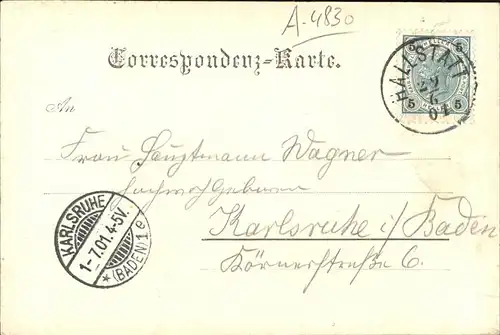 A-4830
Correspondenz-Karte.
An
Frau Hauptmann Wagner
Hochwohlgeboren
Karlsruhe i/Baden
Körnerstraße 6.
HALLSTATT
01
5 5
5 5
KARLSRUHE
1-7.01.4-5V.
* (BADEN) 1 e